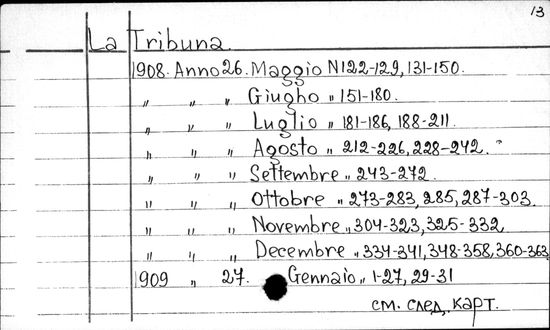 13
La Tribuna.
1908. Anno 26. Maggio N122-129, 131-150.
" " " Giugho " 151-180.
" " " Luglio " 181-186, 188-211.
" " " Agosto " 212-226, 228-242.
" " " Settembre " 243-272.
" " " Ottobre " 273-283, 285, 287-303.
" " " Novembre " 304-323, 325-332
" " " Decembre " 334-341, 348-358, 360-363
1909 " 27. Gennaio " 1-27, 29-31
см. след. карт.